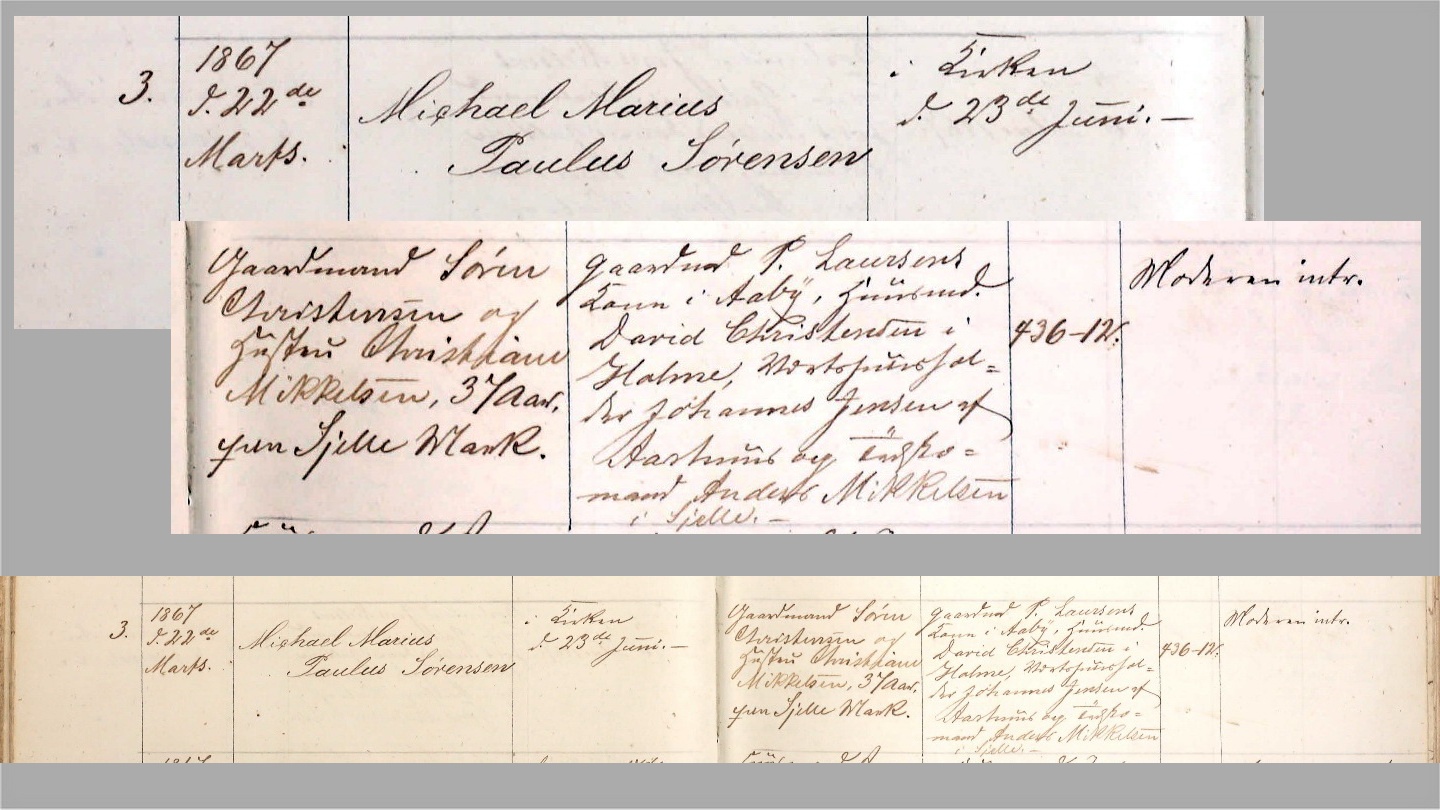 3.
1867
d. 22de
Marts.
Michael Marius
Paulus Sørensen
i Kirken
d. 23de Juni. —
Gaardmand Søren
Christensen og
Hustru Christiane
Mikkelsen, 37 Aar,
paa Sjelle Mark.
Gaardmd P. Laursens
Kone i Aaby, Huusmd.
David Christensen i
Holme, Værtshuushol=
der Johannes Jensen af
Aarhuus og
mand Anders Mikkelsen
i Sjelle. —
436-12.
Moderen intr.
3.
1867
d. 22de
Marts.
Michael Marius
Paulus Sørensen
i Kirken
d. 23de Juni. —
Gaardmand Søren
Christensen og
Hustru Christiane
Mikkelsen, 37 Aar,
paa Sjelle Mark.
Gaardmd P. Laursens
Kone i Aaby, Huusmd.
David Christensen i
Holme, Værtshuushol=
der Johannes Jensen af
Aarhuus og
mand Anders Mikkelsen
i Sjelle. —
436-12.
Moderen intr.